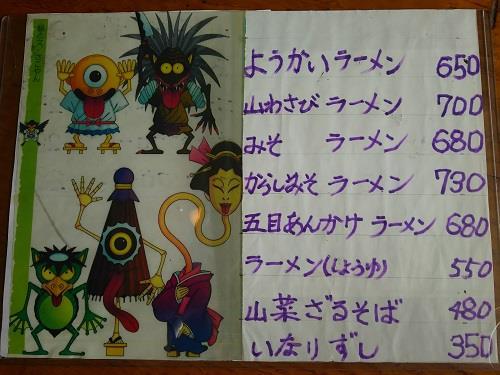 ようかいラーメン 650
山わさび ラーメン 700
みそ ラーメン 680
からしみそ ラーメン 730
五目あんかけ ラーメン 680
ラーメン(しょうゆ) 550
山菜ざるそば 480
いなりずし 350